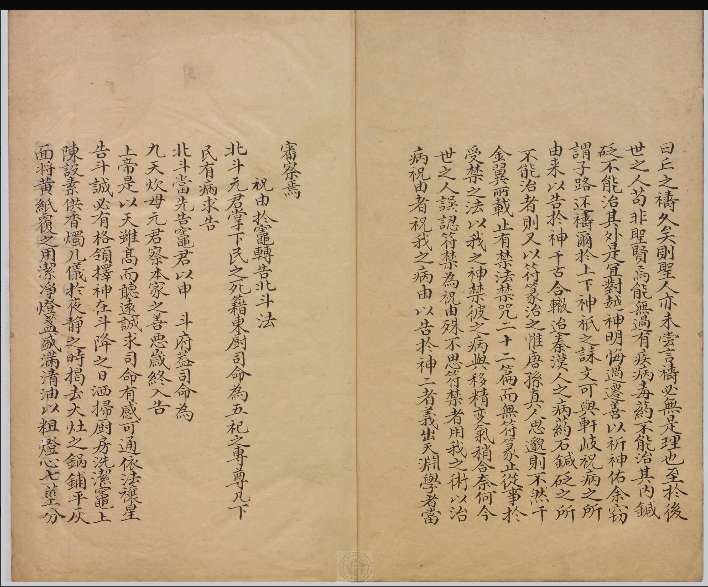 曰丘之禱久矣則聖人亦未嘗言禱必無是理也至於後
世之人苟非聖賢焉能無過有疾病毒藥不能治其內鍼
砭不能治其外是宜對越神明悔過遷善以祈神佑余竊
謂子路還禱爾於上下神祇之誄文可與軒岐祝病之所
由来以告於神千古合轍迨秦漢人之病藥石鍼砭之所
不能治者則又以符篆治之惟唐孫真人思邈則不然千
金翼所載止有禁法禁咒二十二篇而無符篆止從事於
受禁之法以我之神禁彼之病與移精變氣稍合奈何今
世之人誤認符禁為祝由殊不思符禁者用我之術以治
病祝由者祝我之病由以告於神二者義出天淵學者當
審察焉
祝由於竈轉告北斗法
北斗元君掌下民之死籍東厨司命為五祀之專尊凡下
民有病求告
北斗當先告竈君以申 斗府葢司命為
九天炊母元君察本家之善惡歲終入告
上帝是以天雖髙而聽遠誠求司命有感可通依法禳星
告斗誠必有格領擇神在斗降之日洒掃厨房洗潔竈上
陳設素供香燭几儀於夜静之時揭去大灶之鍋鋪平灰
面将黄紙覆之用潔凈燈盞盛滿清油以粗燈心七莖分